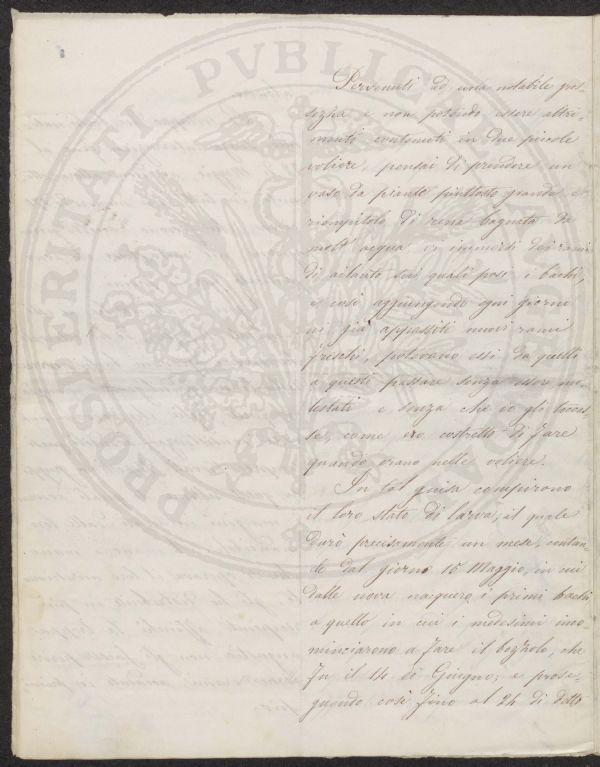 PROSPERITATI PVBLICAE
Pervenuti ad una notabile gros-
sezza e non potendo essere altri-
menti contenuti in due piccole
voliere, pensai di prendere un
vaso da piante piuttosto grande e
riempitolo di rena bagnata da
molt' acqua vi immersi dei rami
di ailanto sui quali posi i bachi,
e così aggiungendo ogni giorno
ai già appassiti nuovi rami
freschi, potevano essi da quelli
a questi passare senza essere mo-
lestati e senza che io gli toccas-
se, come ero costretto di fare
quando erano nelle voliere.
In tal guisa compirono
il loro stato di larva, il quale
durò precisamente un mese, contan-
do dal giorno 15 Maggio, in cui
dalle uova nacquero i primi bachi
a quello in cui i medesimi inco-
minciarono a fare il bozzolo, che
fu il 14 di Giugno; e prose-
guendo così fino al 24 di detto